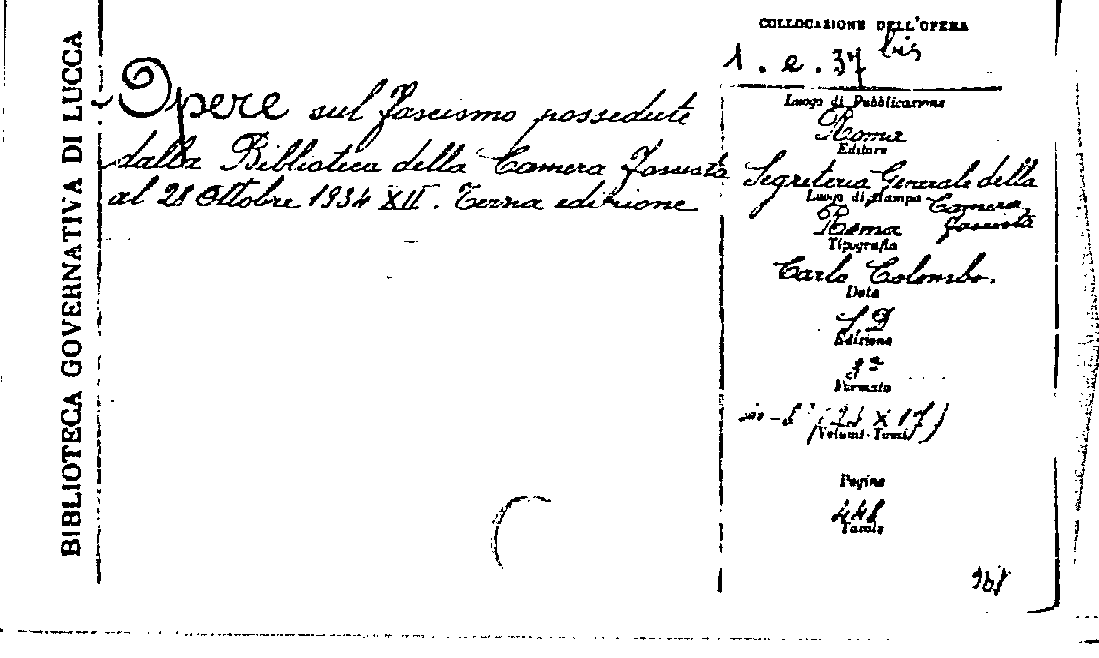 BIBLIOTECA GOVERNATIVA DI LUCCA
Opere sul fascismo possedute
dalla Biblioteca della Camera Fascista
al 28 Ottobre 1934 XII. Terza edizione
COLLOCAZIONE DELL'OPERA
1. e. 37 bis
Luogo di Pubblicazione
Roma
Editore
Segreteria Generale della
Camera
fascista
Luogo di stampa
Roma
Tipografia
Carlo Colombo.
Data
S D
Edizione
3ª
Formato
in-8°
Volumi-Tomi
Pagine
448
Tavole